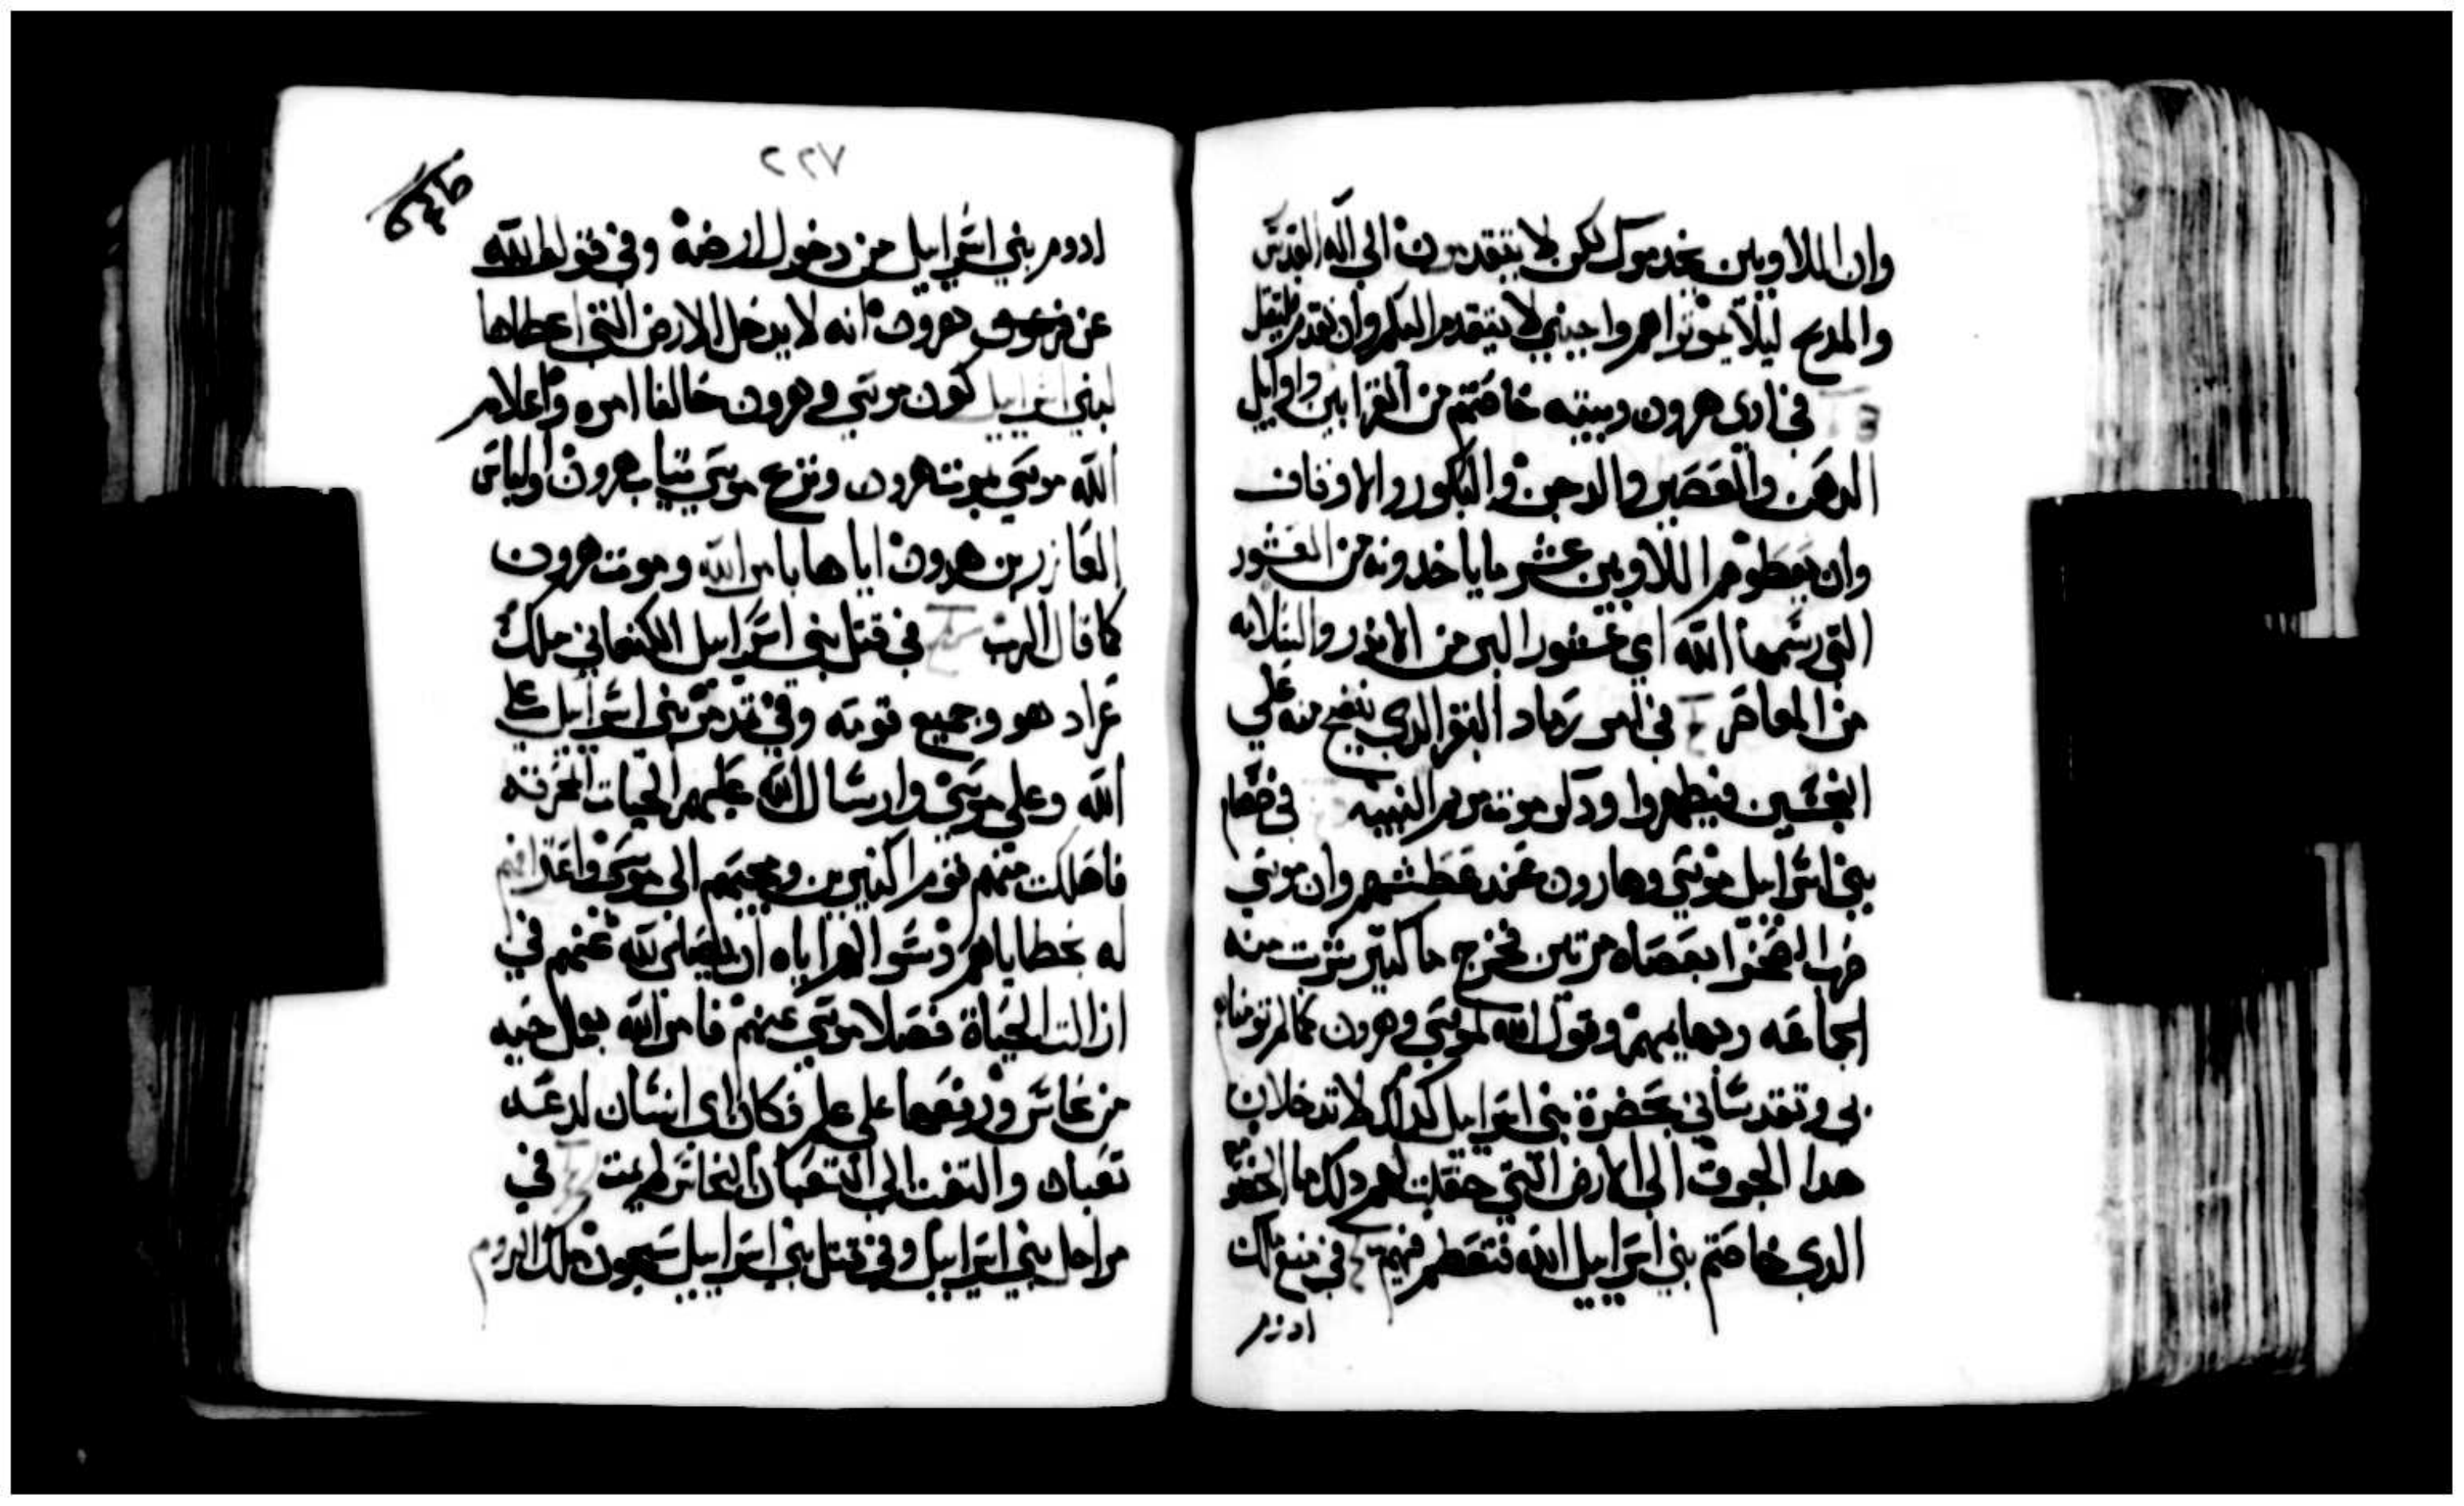 وان اللاويين يخدموك لكن لا يتقدمون الي الة القدس
والمدبح ليلا يموتوا هم واجنبي لا يتقدم اليكم وان تقدم فليقتل
في ادي هرون وبيته خاصتهم من القرابين واوايل
الدهن والعصير والدجن والبكور والاوقاف
وان يعطوهم اللاويين عشر ما ياخدونه من العشور
التي رسمها الله اي عشور البر من الاندر والسلافه
من المعاصر في امر رماد البقر الدي ينضح منه علي
النجسين فيطهروا ودكر موت مريم النبيه في خصام
بني اسراييل موسي وهارون عند عطشهم وان موسي
ضرب الصخرا بعصاه مرتين فخرج ما كتير شربت منه
الجماعه وبهايمهم وقول الله لموسي وهرون كما لم تومنا
بي وتقدساني بحضرة بني اسراييل كدلك لا تدخلان
هدا الجوق الي الارض التي جعلت لهم دلك ما الخصومه
الدي خاصم بني اسراييل الله فتعظم فيهم في منع ملك
ادوم
٢٢٧
ادوم بني اسراييل من دخول ارضه وفي قول الله
عن هرون انه لا يدخل الارض التي اعطاها
لبني اسراييل كون موسي وهرون خالفا امره واعلام
الله موسي بموت هرون ونزع موسي تياب هرون والباس
العازر بن هرون اياها بامر الله وموت هرون
كما قال الرب في قتل بني اسراييل الكنعاني ملك
عراد هو وجميع قومه وفي تدمر بني اسراييل علي
الله وعلي موسي وارسال الله عليهم الحيات المحرقه
فاهلكت منهم قوم اكتيرين ومجيهم الي موسي واعترافهم
له بخطاياهم وسوالهم اياه ان يصلي لله عنهم في
ازالت الحياة فصلا موسي عنهم فامر الله بعمل حيه
من نحاس ورفعها علي علم فكان اي انسان لدغه
تعبان والتفت الي التعبان النحاس لم يمت في
مراحل بني اسراييل وفي قتل بني اسراييل سيحون ملك